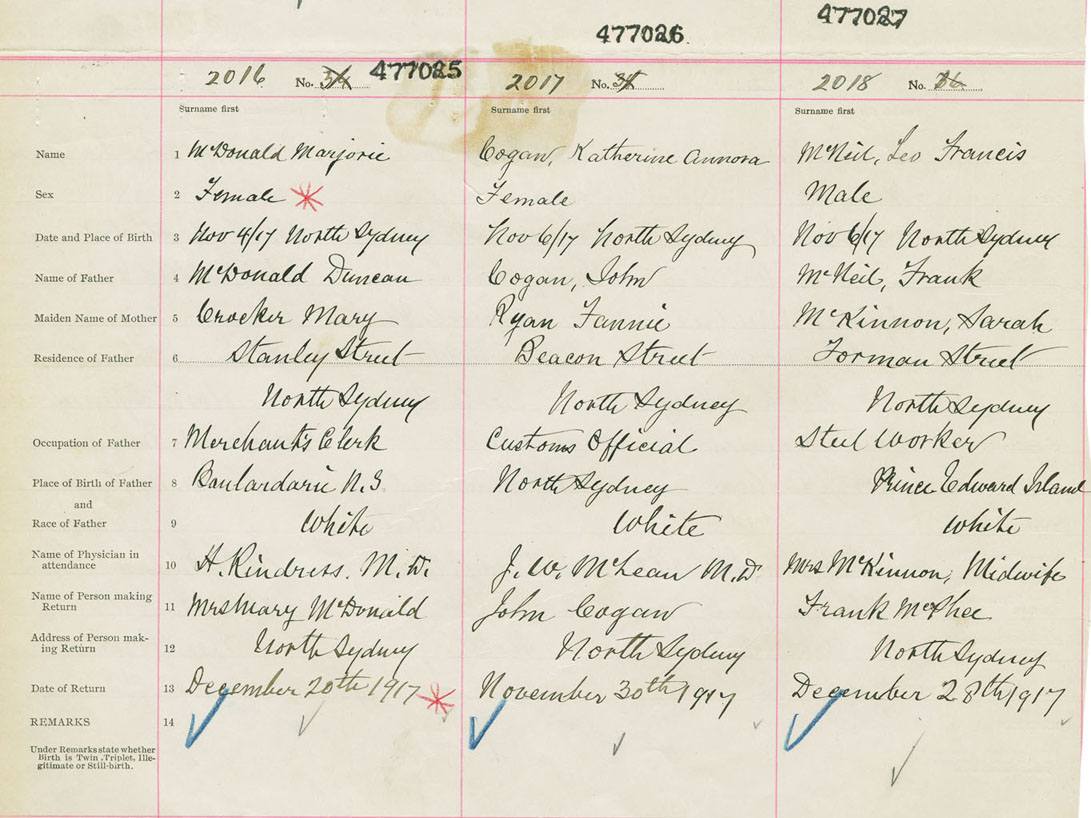 477026
477027
2016 No. 34 477025
2017 No. 34
2018 No.
Surname first
Surname first
Surname first
Name 1 McDonald Marjorie
Cogan, Katherine Annora
McNeil, Leo Francis
Sex 2 Female
Female
Male
Date and Place of Birth 3 Nov 4/17 North Sydney
Nov 6/17 North Sydney
Nov 6/17 North Sydney
Name of Father 4 McDonald Duncan
Cogan, John
McNeil, Frank
Maiden Name of Mother 5 Crocker Mary
Ryan Fannie
McKinnon, Sarah
Residence of Father 6 Stanley Street
Beacon Street
Forman Street
North Sydney
North Sydney
North Sydney
Occupation of Father 7 Merchants Clerk
Customs Official
Steel Worker
Place of Birth of Father 8 Boulardarie N.S
North Sydney
Prince Edward Island
and
Race of Father 9 White
White
White
Name of Physician in
attendance 10 H. Rindress. M.D.
J. W. McLean M.D.
Mrs McKinnon, Midwife
Name of Person making
Return 11 Mrs Mary McDonald
John Cogan
Frank McPhee
Address of Person mak-
ing Return 12 North Sydney
North Sydney
North Sydney
Date of Return 13 December 20th 1917
November 30th 1917
December 28th 1917
REMARKS 14
Under Remarks state whether
Birth is Twin, Triplet, Ille-
gitimate or Still-birth.